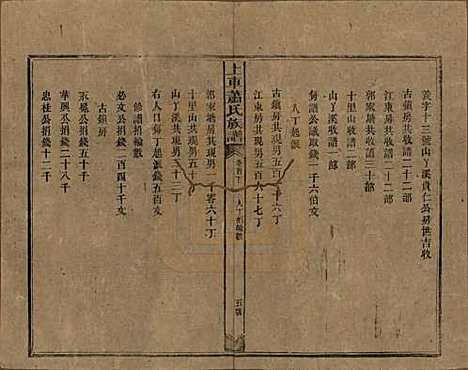 義字十三號山丫溪貴仁公房世吉收
古鎮房共收譜二十二部
江東房共收譜二十二部
郭家塘房共收譜三部
十里山收譜二部
山丫溪收譜一部
每譜公議取錢一千六伯文
人丁起派
古鎮房共現男五百 十六丁
江東房共現男 百六十七丁
上車蕭氏族譜
卷首下
人丁
五修
郭家塘房共現男二 零六十丁
十里山共現男五十 丁
山丫溪共現男八十三丁
右人口每丁起派錢五百文
必文公捐錢一百四十千文
修譜捐輸數
古鎮房
永冕公捐錢五十千
華興公捐錢二十八千
忠桂公捐錢十二千